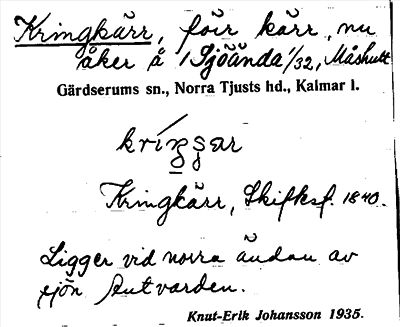 Kringkärr, förr kärr, nu
åker å Sjöända 1/32, Måshult
Gärdserums sn., Norra Tjusts hd., Kalmar l.
Kringkärr, Skifksf. 1840.
Ligger vid norra ändan av
sjön Sutvarden.
Knut-Erik Johansson 1935.